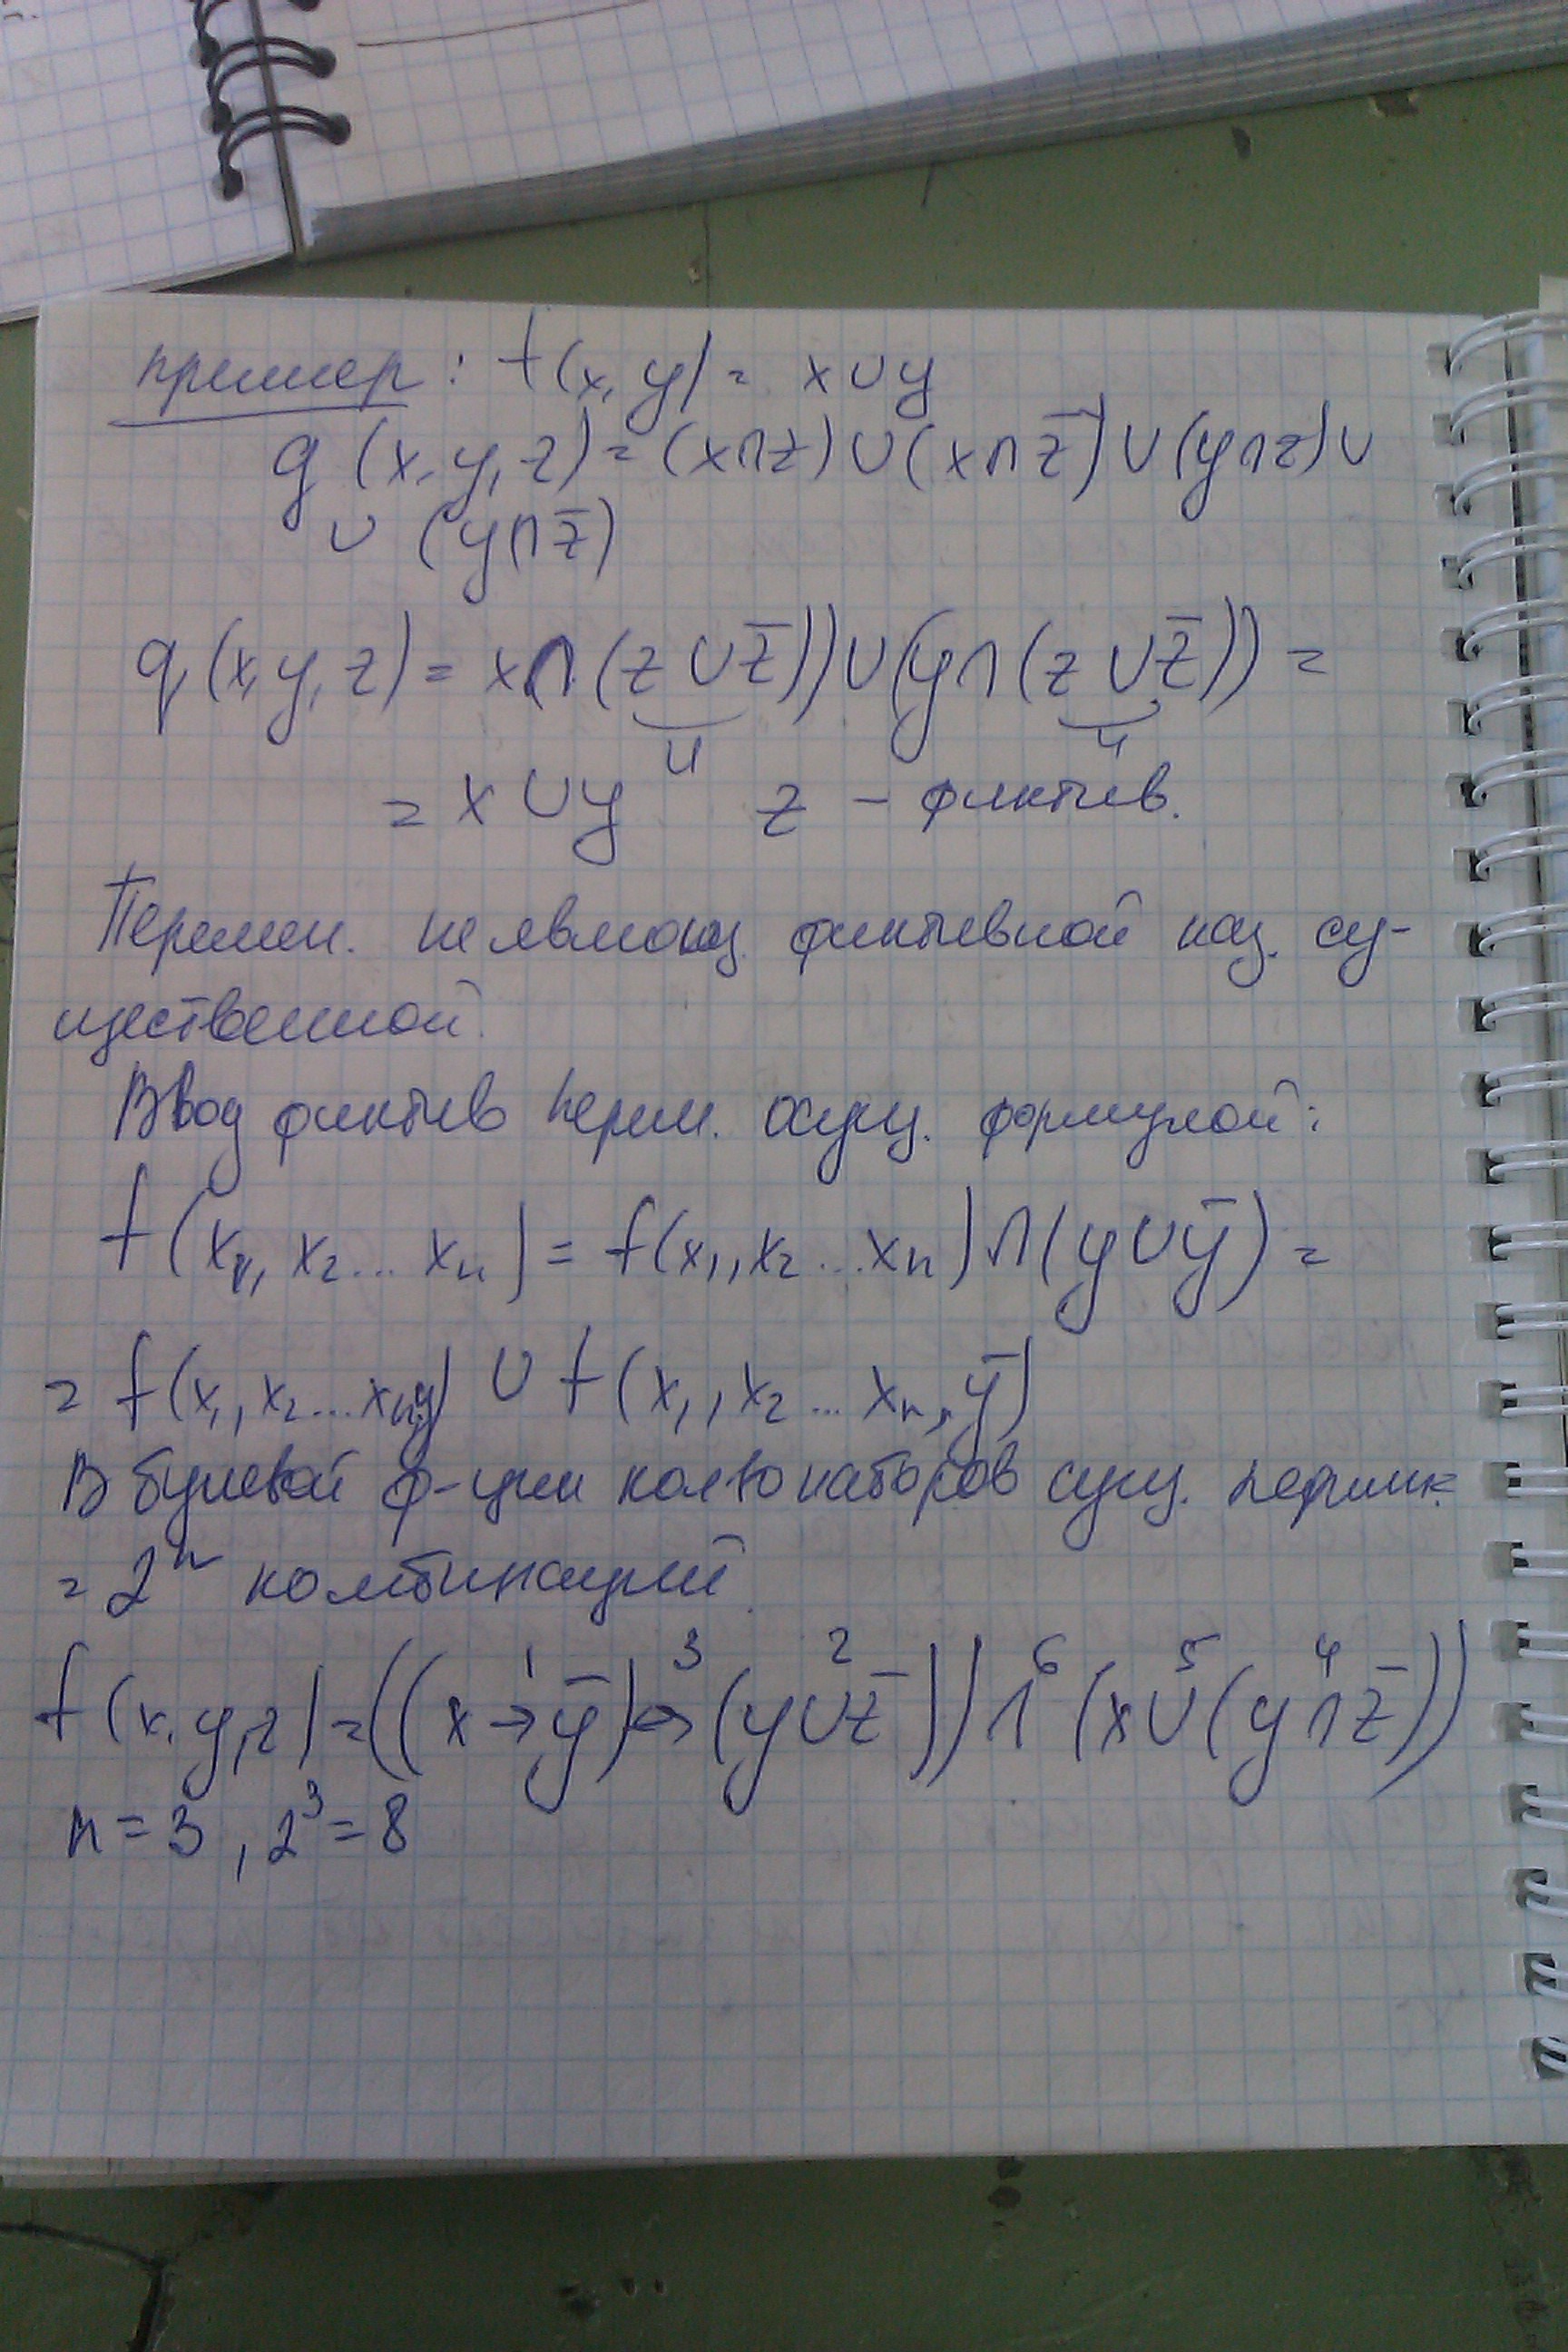 пример: f(x, y) = x ∪ y
q (x, y, z) = (x∩z) ∪ (x∩z̅) ∪ (y∩z) ∪
∪ (y∩z̅)
q (x, y, z) = x∩(z ∪ z̅)) ∪ (y∩(z ∪ z̅)) =
и и
= x ∪ y z – фиктив.
Перемен. не являющ. фиктивной наз. су-
щественной.
Ввод фиктив перем. осущ. формулой:
f(x₁, x₂ ... xₙ) = f(x₁, x₂ ... xₙ) ∩ (y ∪ y̅) =
= f(x₁, x₂ ... xₙ,y) ∪ f(x₁, x₂ ... xₙ, y̅)
В булевой ф-ции кол-во наборов сущ. перем.
= 2ⁿ комбинаций.
1 3 2 6 5 4
f(x, y, z) = ((x → y̅) ↔ (y ∪ z̅)) ∩ (x ∪ (y ∩ z̅))
n = 3, 2³ = 8